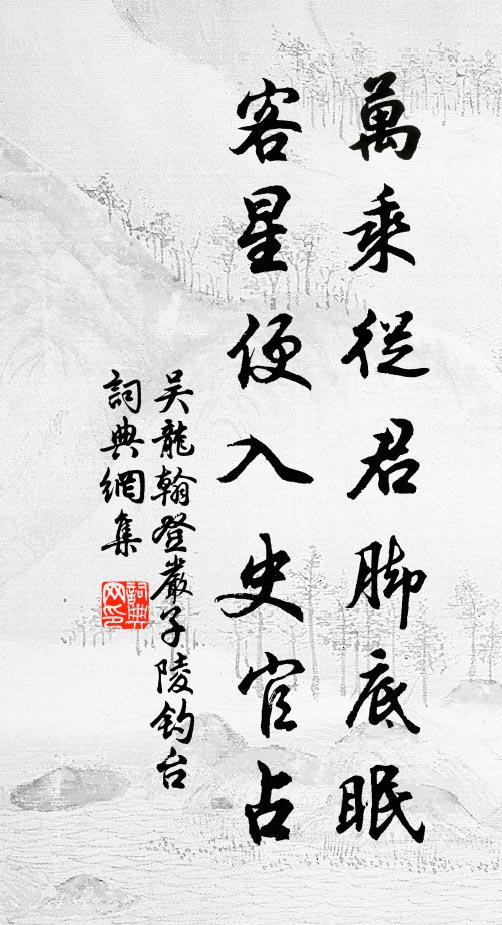 萬乘從君脚底眠
客星便入史官占
吴龍翰登嚴子陵钓台
詞典網集
詞典網印